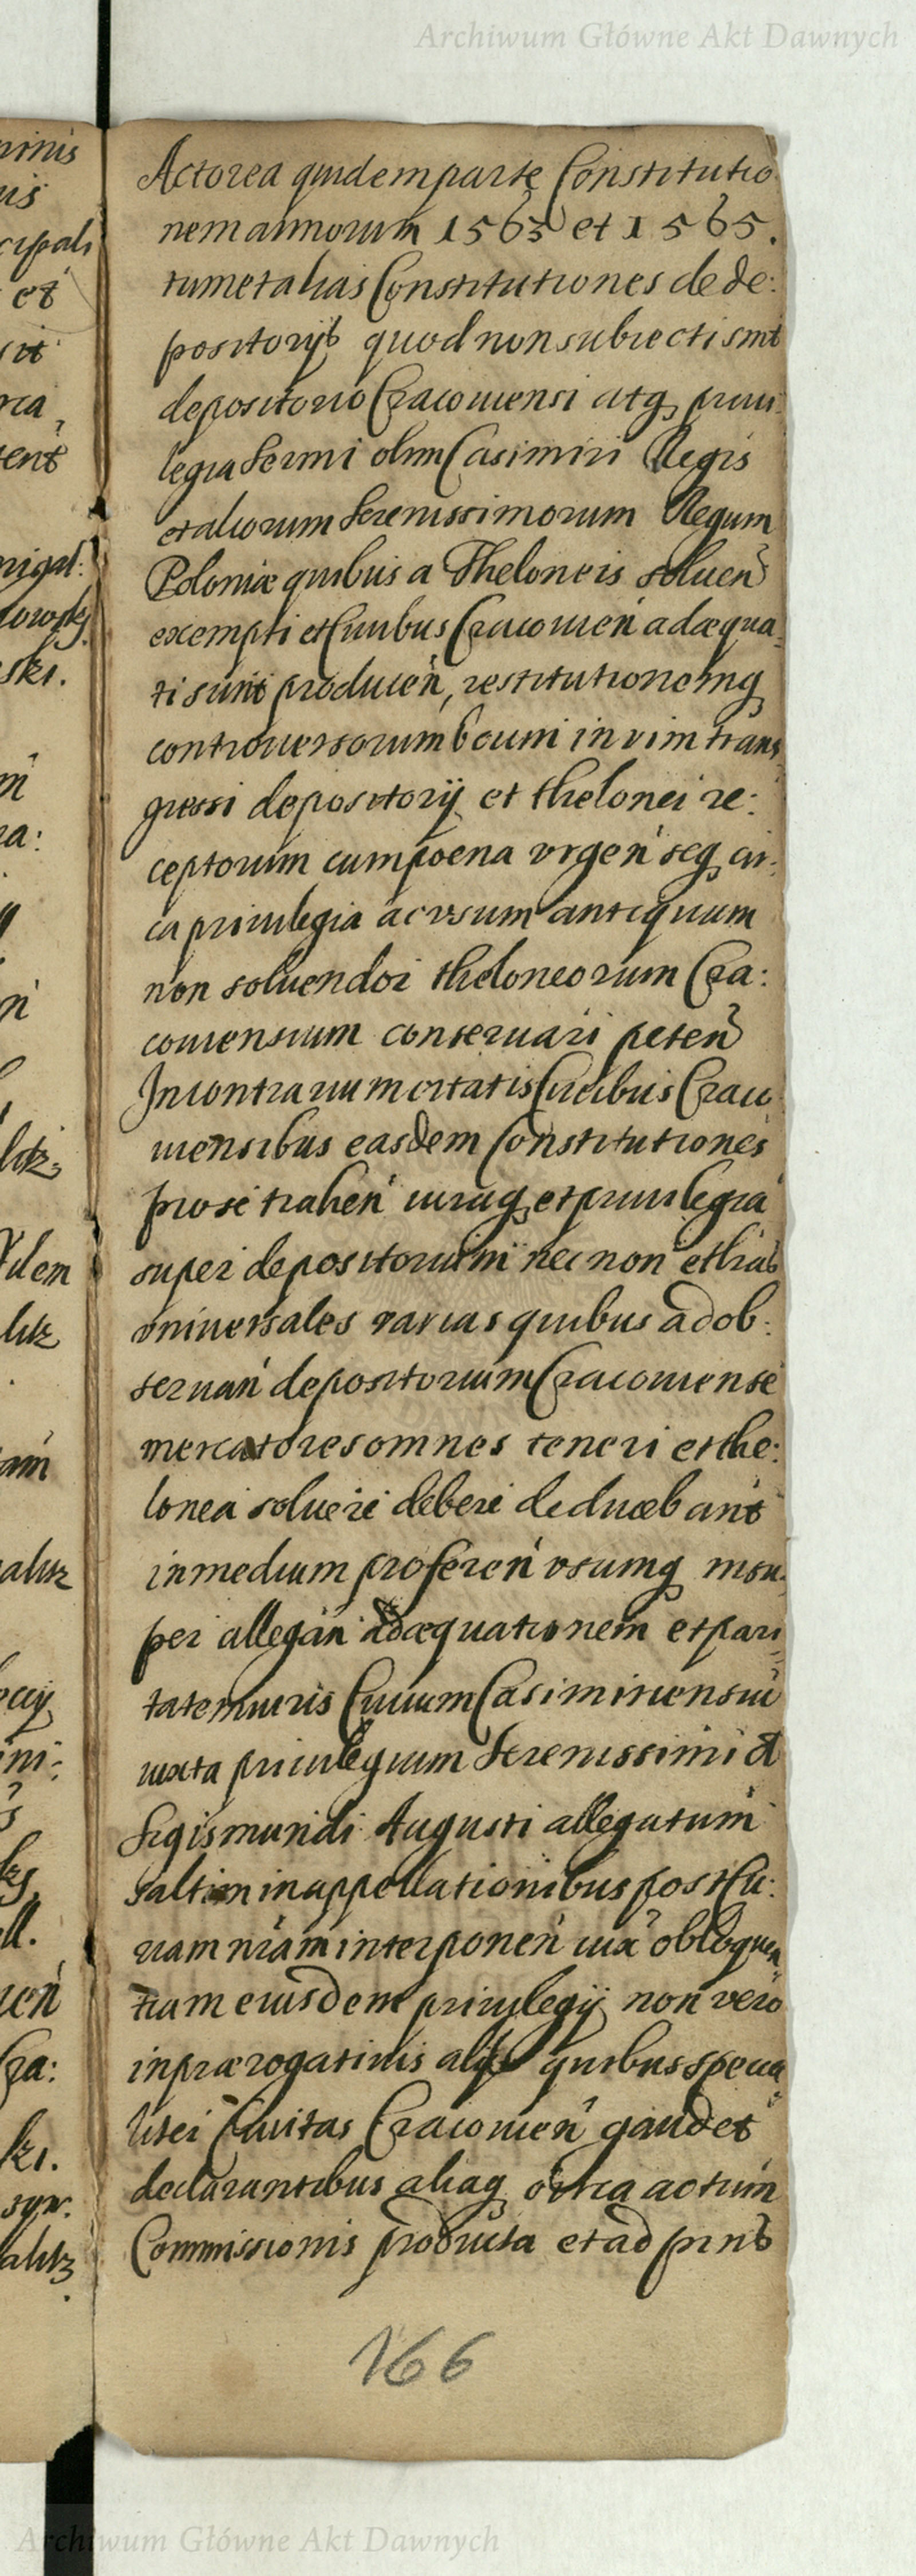 Archiwum Główne Akt Dawnych
Actorea quidem parte Constitutio
nem annorum 1563 et 1565.
tum et alias Constitutiones de de:
positorijs quod non subiecti sint
depositorio Cracouiensi atq priui:
legia Sermi olim Casimiri Regis
et aliorum Serenissimorum Regum
Poloniæ quibus a Theloneis soluen
exempti et Ciuibus Cracouien adæqua
ti sunt producen, restitutionemq
controuersorum boum in vim trans
gressi depositorij et thelonei re:
ceptorum cum poena vrgen seq cir:
ca priuilegia ac vsum antiquum
non soluendor theloneorum Cra:
couiensium conseruari peten
In contrarium citatis Ciuibus Craco
uiensibus easdem Constitutiones
pro se trahen iuraq et priuilegia
super depositorium nec non et lras
vniuersales varias quibus ad ob:
seruan depositorium Cracouiense
mercatores omnes teneri et the:
lonea soluere debere deducebant
in medium proferen vsumq insu:
per allegan adæquationem et pari
tatem iuris Ciuium Casimiriensiu
iuxta priuilegium Serenissimi
Sigismundi Augusti allegatum
saltim in appellationibus post Cu:
riam nram interponen iux obloquen
tiam eiusdem priuilegij non vero
in prærogatiuis alijs quibus specia
liter Ciuitas Cracouien gaudet
declarantibus aliaq circa actum
Commissionis producta et ad prns
166
ninis
cipali
et
sit
ski.
Archiwum Główne Akt Dawnych